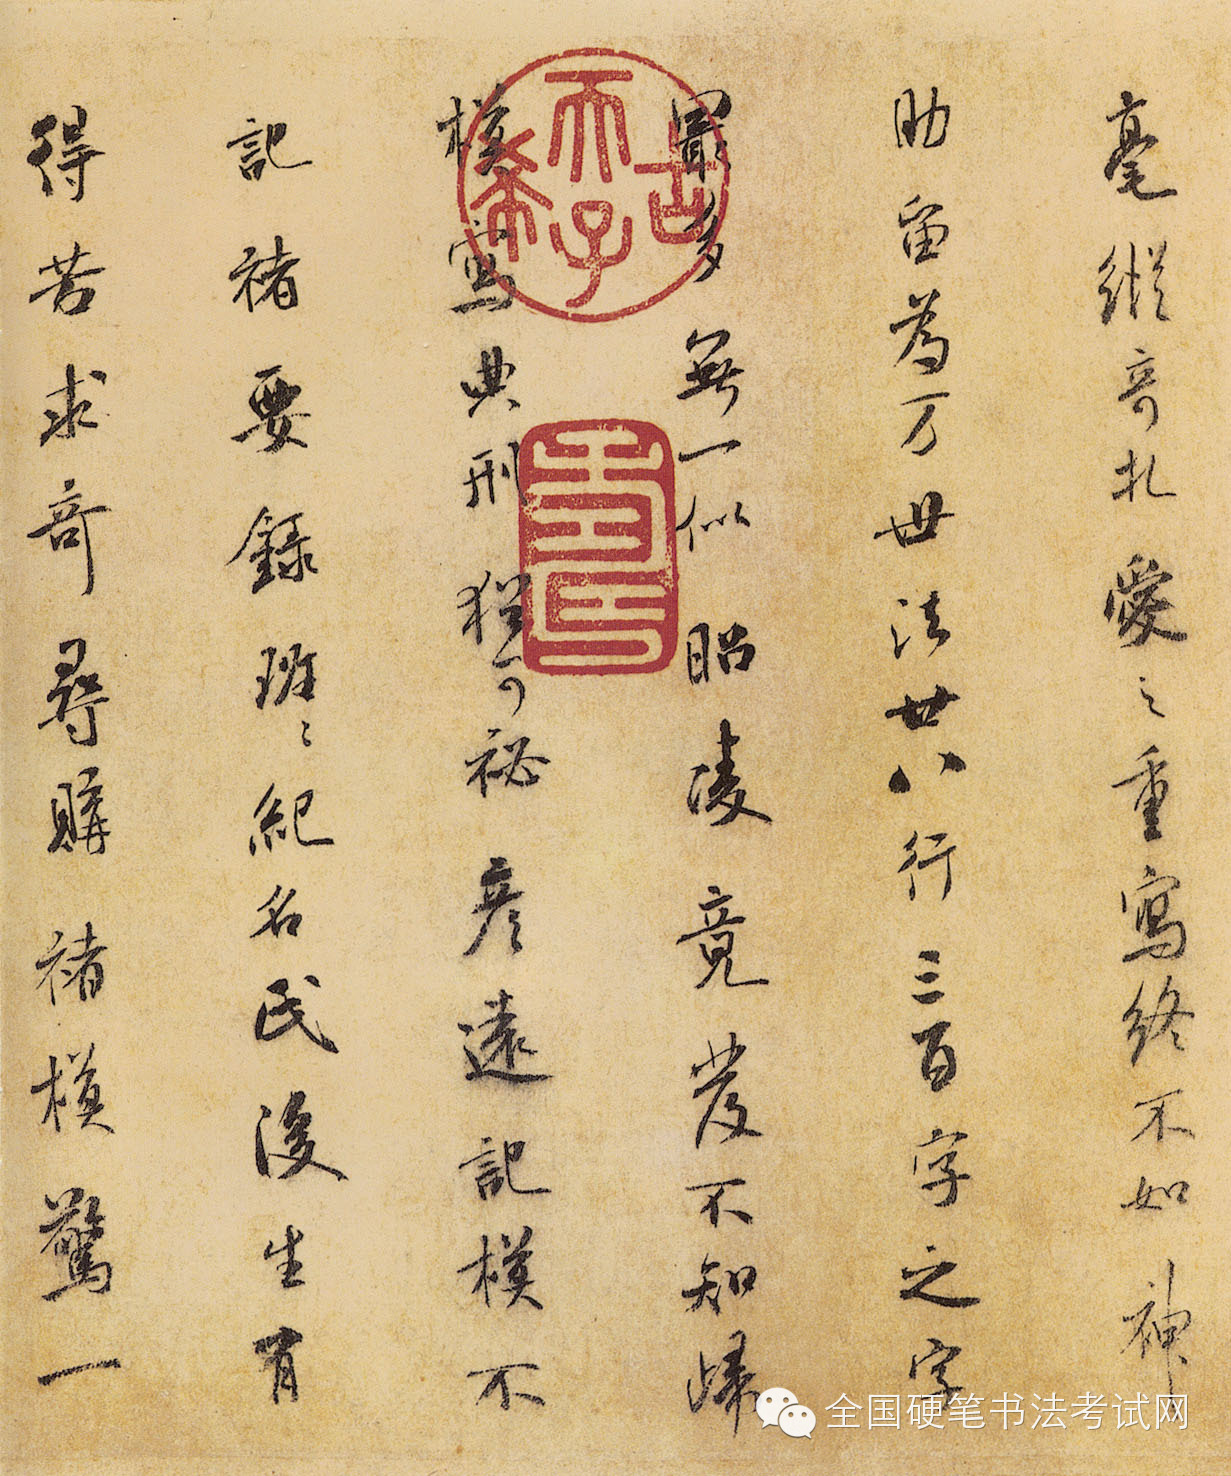 毫縱奇札愛之重寫終不如神
助留為万世法廿八行三百字之字
最多無一似昭陵竟發不知歸
模寫典刑猶可祕彥遠記模不
記褚要錄班〻紀名氏後生有
得苦求奇尋購褚模驚一
天子
全国硬笔书法考试网